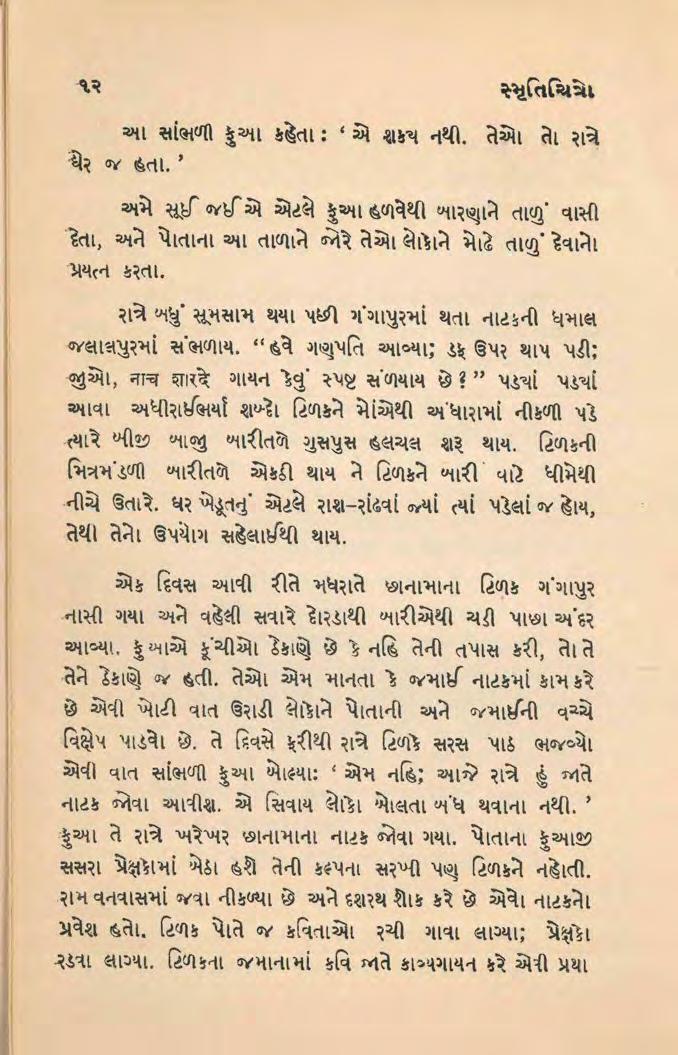 ૧૨ સ્મૃતિચિત્રો
આ સાંભળી ફુઆ કહેતા : ‘ એ શક્ય નથી. તેઓ તો રાત્રે
ઘેર જ હતા. ’
અમે સૂઈ જઈએ એટલે ફુઆ હળવેથી બારણાને તાળું વાસી
દેતા, અને પોતાના આ તાળાને જોરે તેઓ લોકોને મોઢે તાળું દેવાનો
પ્રયત્ન કરતા.
રાત્રે બધું સૂમસામ થયા પછી ગંગાપુરમાં થતા નાટકની ધમાલ
જલાલપુરમાં સંભળાય. “ હવે ગણપતિ આવ્યા; ડફ ઉપર થાપ પડી;
જીઓ, नाच शारदे ગાયન કેવું સ્પષ્ટ સંળયાય છે ? ” પડ્યાં પડ્યાં
આવા અધીરાઈભર્યા શબ્દો ટિળકને મોંએથી અંધારામાં નીકળી પડે
ત્યારે બીજી બાજુ બારીતળે ગુસપુસ હલચલ શરૂ થાય. ટિળકની
મિત્રમંડળી બારીતળે એકઠી થાય ને ટિળકને બારી વાટે ધીમેથી
નીચે ઉતારે. ઘર ખેડૂતનું એટલે રાશ–રાંઢવાં જ્યાં ત્યાં પડેલાં જ હોય,
તેથી તેનો ઉપયોગ સહેલાઈથી થાય.
એક દિવસ આવી રીતે મધરાતે છાનામાના ટિળક ગંગાપુર
નાસી ગયા અને વહેલી સવારે દોરડાથી બારીએથી ચડી પાછા અંદર
આવ્યા. ફુઆએ કૂંચીઓ ઠેકાણે છે કે નહિ તેની તપાસ કરી, તો તે
તેને ઠેકાણે જ હતી. તેઓ એમ માનતા કે જમાઈ નાટકમાં કામ કરે
છે એવી ખોટી વાત ઉરાડી લોકોને પોતાની અને જમાઈની વચ્ચે
વિક્ષેપ પાડવો છે. તે દિવસે ફરીથી રાત્રે ટિળકે સરસ પાઠ ભજવ્યો
એવી વાત સાંભળી ફુઆ બોલ્યા: ‘ એમ નહિ; આજે રાત્રે હું જાતે
નાટક જોવા આવીશ. એ સિવાય લોકો બોલતા બંધ થવાના નથી. ’
ફુઆ તે રાત્રે ખરેખર છાનામાના નાટક જોવા ગયા. પોતાના ફુઆજી
સસરા પ્રેક્ષકોમાં બેઠા હશે તેની કલ્પના સરખી પણ ટિળકને નહોતી.
રામ વનવાસમાં જવા નીકળ્યા છે અને દશરથ શોક કરે છે એવો નાટકનો
પ્રવેશ હતો. ટિળક પોતે જ કવિતાઓ રચી ગાવા લાગ્યા; પ્રેક્ષકો
રડવા લાગ્યા. ટિળકના જમાનામાં કવિ જાતે કાવ્યગાયન કરે એવી પ્રથા